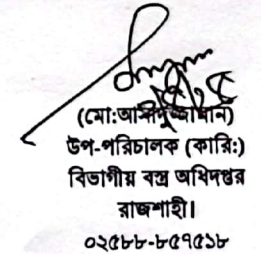 (মো:আসাদুজ্জামান)
উপ-পরিচালক (কারি:)
বিভাগীয় বস্ত্র অধিদপ্তর
রাজশাহী।
০২৫৮৮-৮৫৭৫১৮